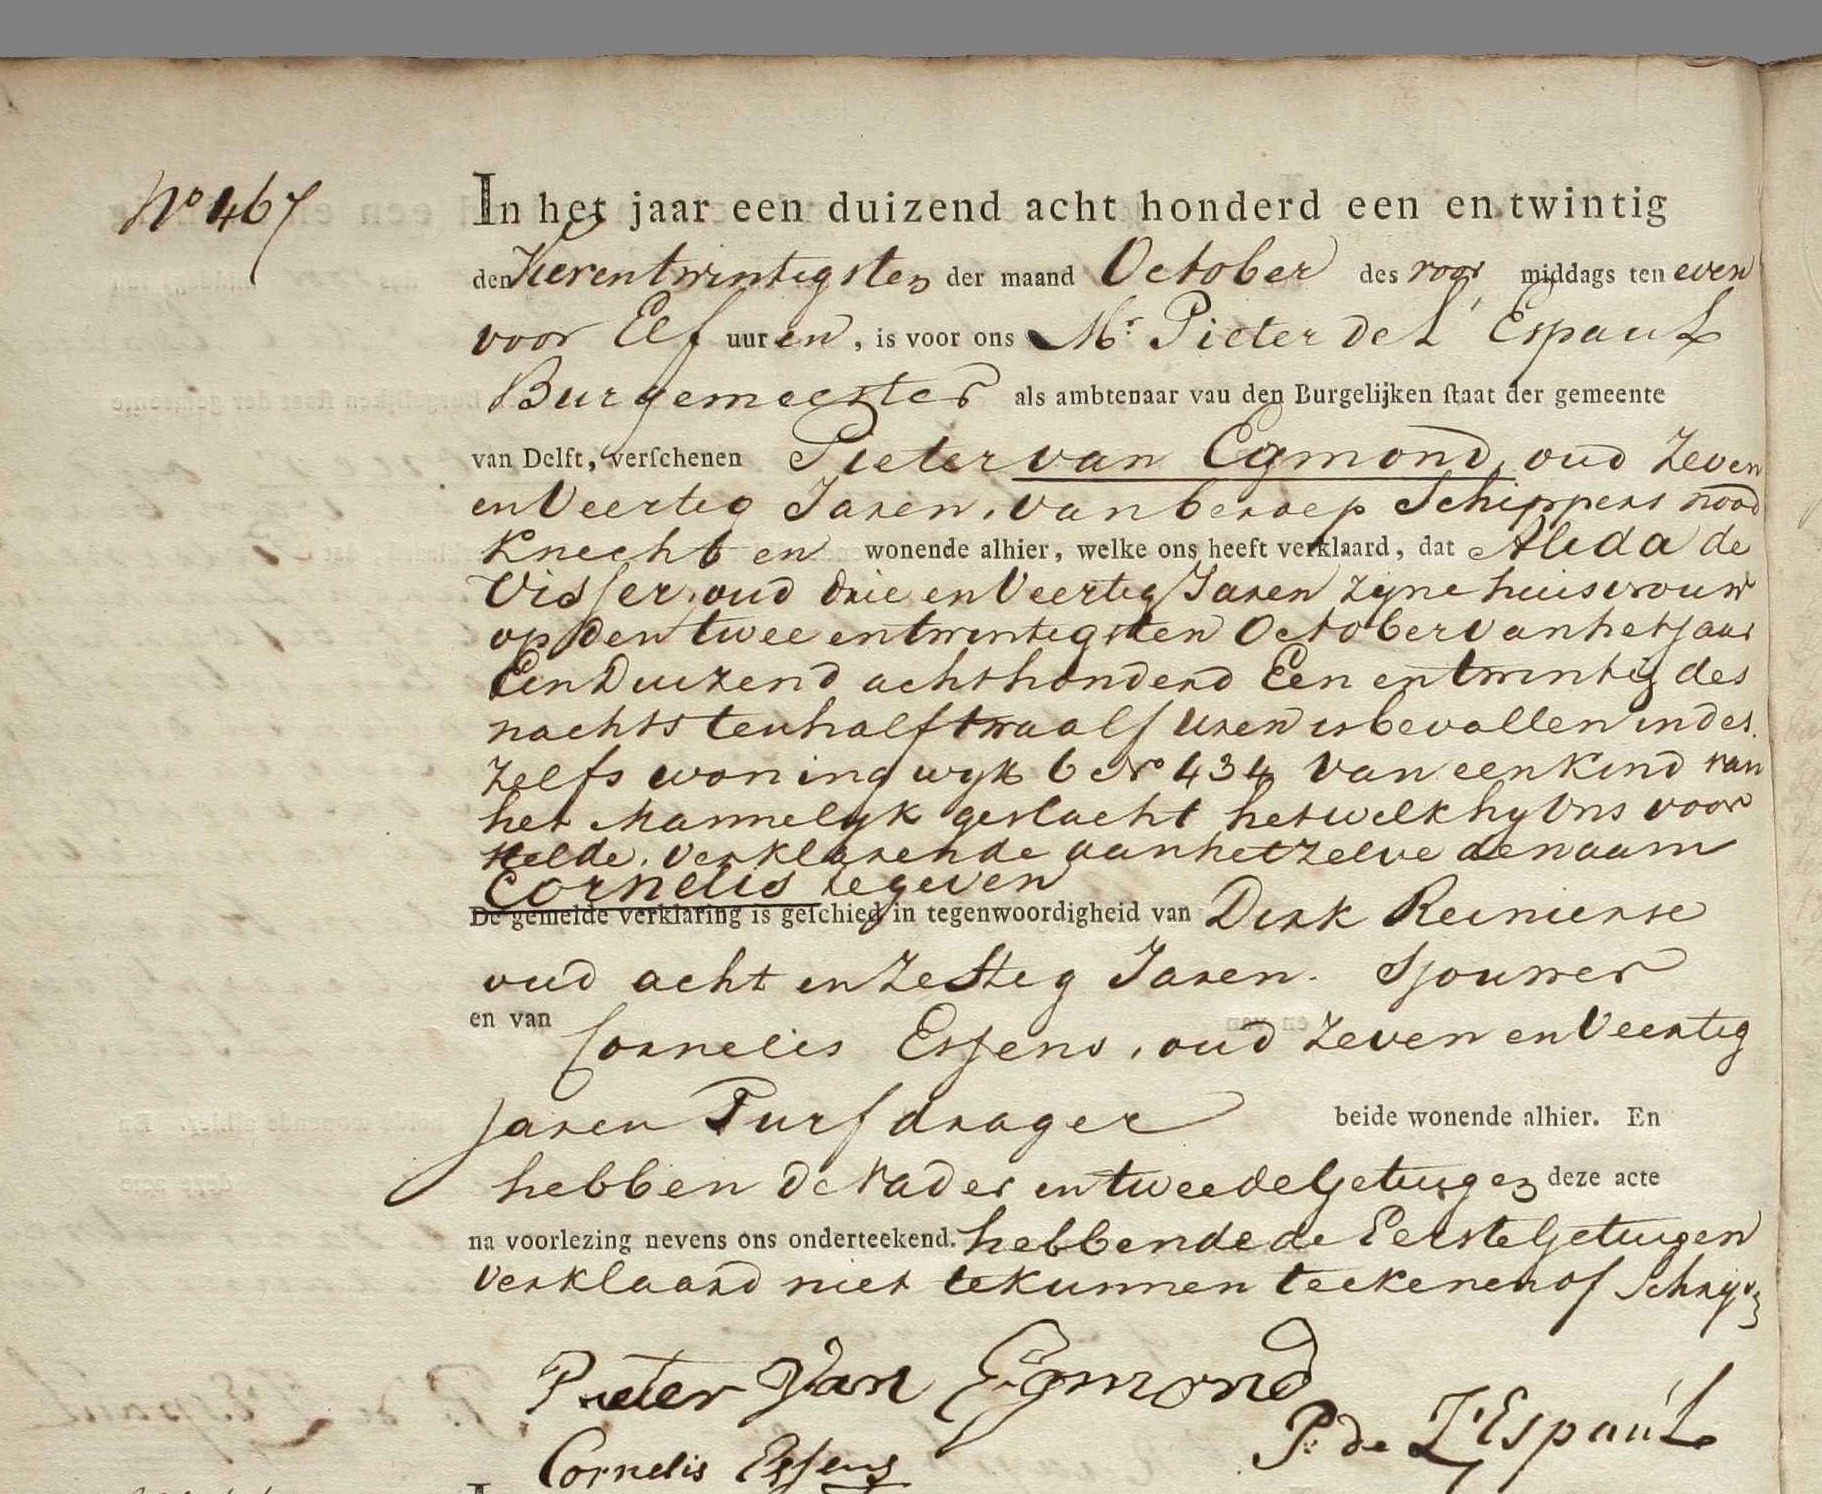 No 467
In het jaar een duizend acht honderd een en twintig
den Vierentwintigsten der maand October des voor middags ten even
voor Elf uuren, is voor ons Mr. Pieter de L'Espaul
Burgemeester als ambtenaar vau den Burgelijken staat der gemeente
van Delft, verschenen Pieter van Egmond, oud Zeven
en Veertig Jaren, van beroep Schippers
Knecht en wonende alhier, welke ons heeft verklaard, dat Alida de
Visser, oud drie en Veertig Jaren zyne huisvrouw
op den twee entwintigsten October van het jaar
Een Duizend achthonderd Een entwintig des
nachts ten half twaalf uren is bevallen in des
zelfs woning wyk 6 No 434 van een Kind van
het Mannelyk geslacht hetwelk hy ons voor
stelde, verklarende aan hetzelve de naam
Cornelis te geven
De gemelde verklaring is geschied in tegenwoordigheid van Dirk Reinierse
oud acht en Zestig Jaren. Sjouwer
en van Cornelis Essens, oud Zeven en Veertig
jaren Turfdrager beide wonende alhier. En
hebben de Vader en tweede Getuigen deze acte
na voorlezing nevens ons onderteekend. hebbende de Eerste Getuigen
Verklaard niet te kunnen teekenen of Schryven
Pieter Van Egmond
P. de L'Espaul
Cornelis Essens